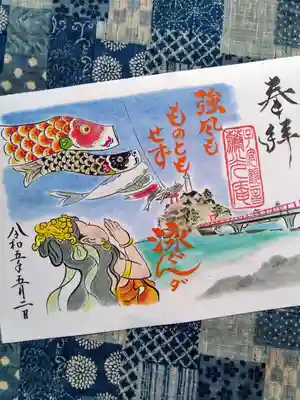 奉拝
強風も
ものとも
せず
泳ぐんダ
令和五年五月二日